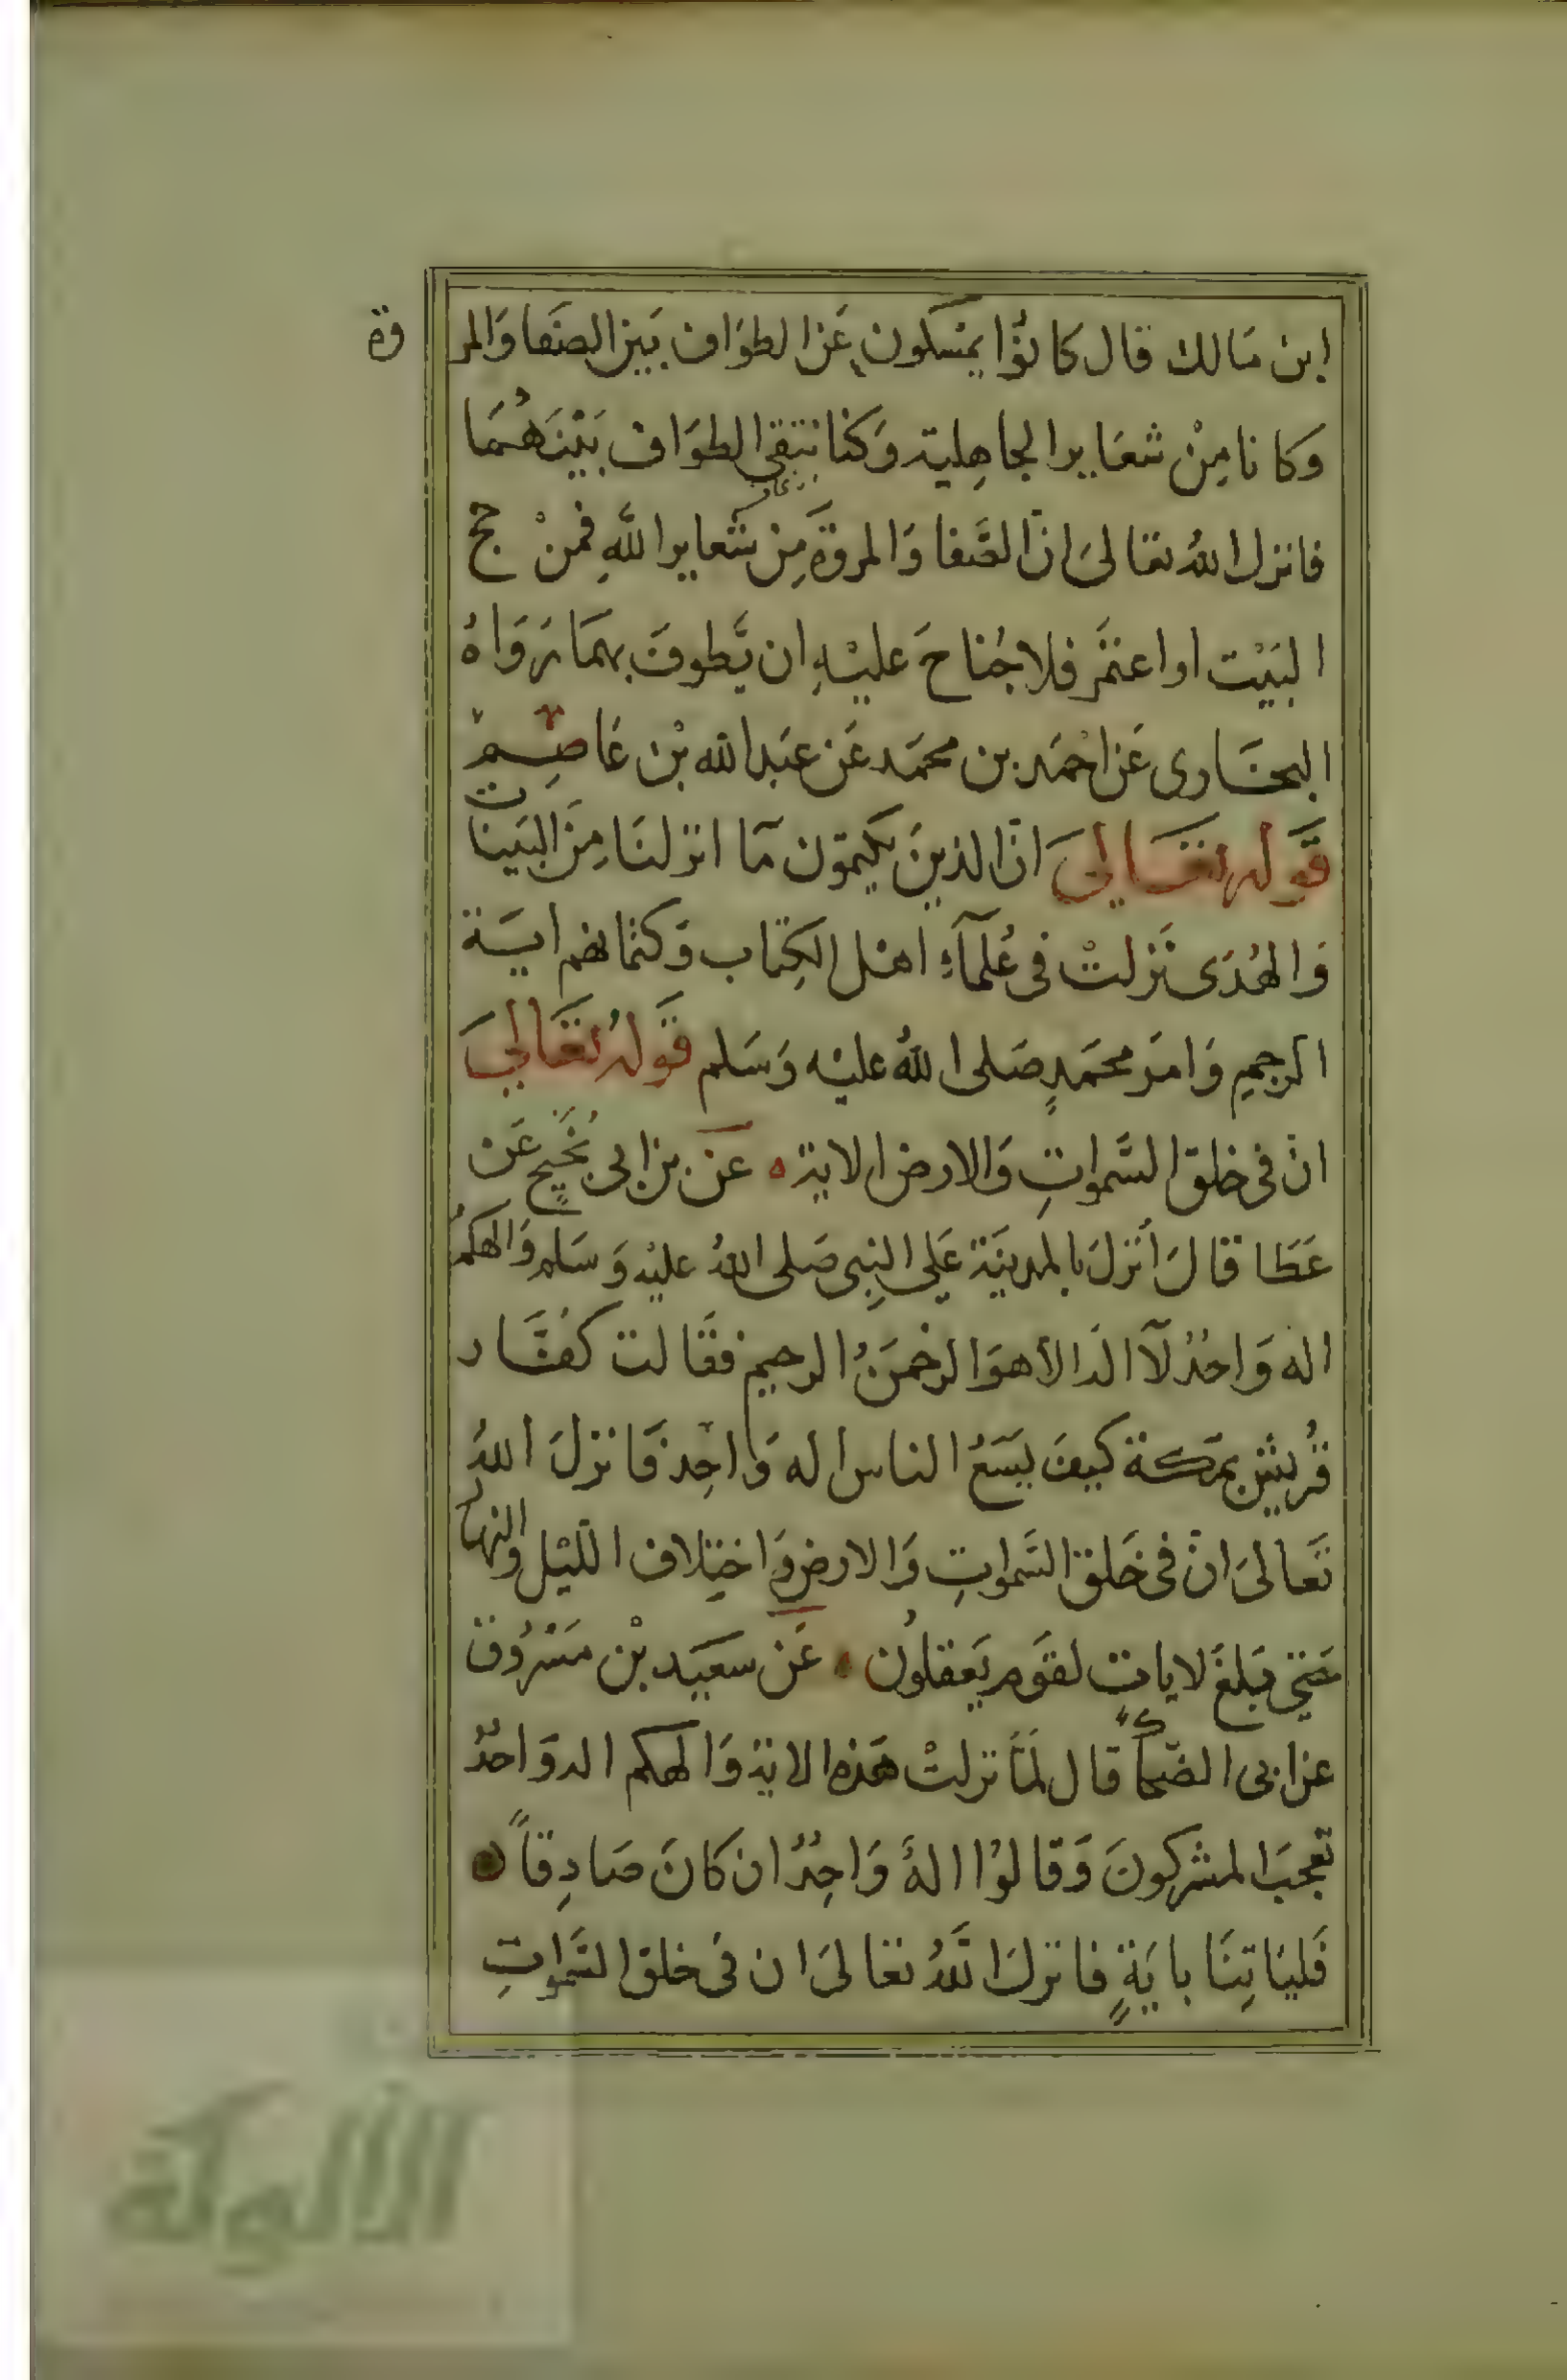 ابن مَالك قال كانوُا يمْسكون عَن الطوَاف بَين الصفَا وَالمروة
وكانا مِنْ شعَاير الجاهِلية وَكنا نتقى الطوَاف بَيْنَهُمَا
فانزل اللهُ تعالىَ انّ الصَّفا وَالمروَةَ مِن شعاير اللَّهِ فمنْ حج
البَيْت او اعتمَر فلا جُناحَ عليْهِ ان يَّطوفَ بهمَا رَوَاهُ
البخَارى عَن احْمَد بن محمَد عَن عبَد الله بْن عَاصِمْ
قَوله تعَالىَ انّ الذينَ يكتمون مَا انزلنَا مِنَ البَينات
وَالهُدَى نَزلتْ فى عُلمَآءِ اهْل الكِتاب وَكتمانهم ايَة
الرجمِ وَامرَ محمَدٍ صَلى اللهُ عليْه وَسَلم قَولهُ تعَالىَ
انّ فى خلق السَّمواتِ وَالارض الاية عَن بن ابى نُجَيحٍ عَن
عَطَا قالَ أنزلَ بالمدينَة عَلى النِبى صَلى اللهُ عليْه وَسَلم وَالهكمُ
اله وَاحدُ لآ اله الاهوَ الرحْمَنُ الرحيم فقَالت كفَّار
قُريشْ بمَكة كيفَ يسَعُ الناس اله وَاحِد فَانزلَ اللهُ
تَعالىَ انّ فى خَلق السَّمواتِ وَالارض وَاختِلاف اللّيْل والنهار
حَتى بَلغَ لايات لقوَم يَعقلوُن عَن سعَيد بْن مَسْرُوق
عن ابى الضحاك قال لمَّا نزلتْ هَذه الاية وَالهكم اله وَاحدٌ
تعجبَ المشركونَ وَقالوُا الهُ وَاحِدُ ان كانَ صَادِقاً
فَليَاتِنَا بايَةٍ فانزلَ اللَّهُ تعالىَ ان فى خلق السَّمواتِ
الألوكة